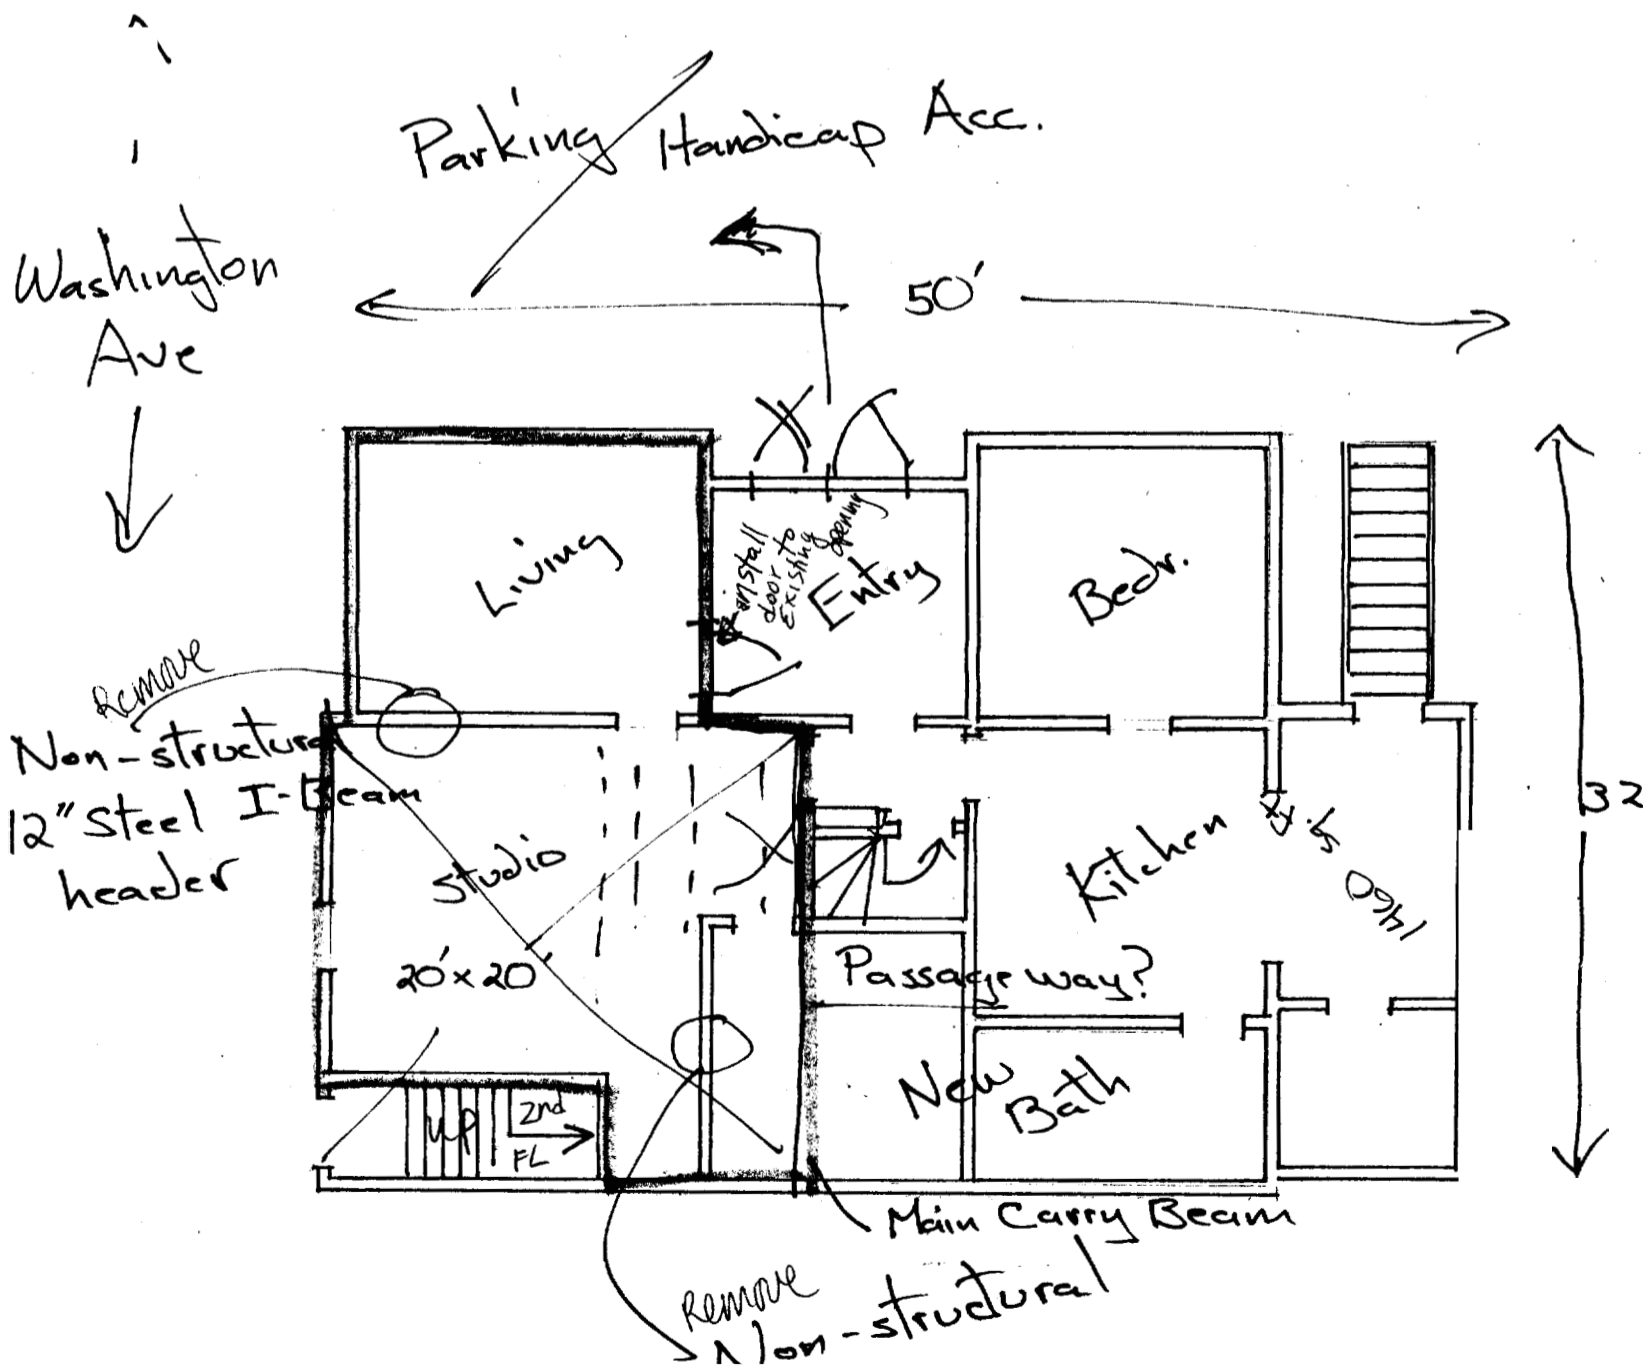 Parking Handicap Acc.
Washington
Ave
50'
Living
install
door to
Existing
opening
Entry
Bedr.
Remove
Non-structural
12" Steel I-Beam
header
32
Studio
20' x 20'
Kitchen
1460 sq. ft
Passage way?
New
Bath
UP
2nd
FL
Main Carry Beam
Remove
Non-structural